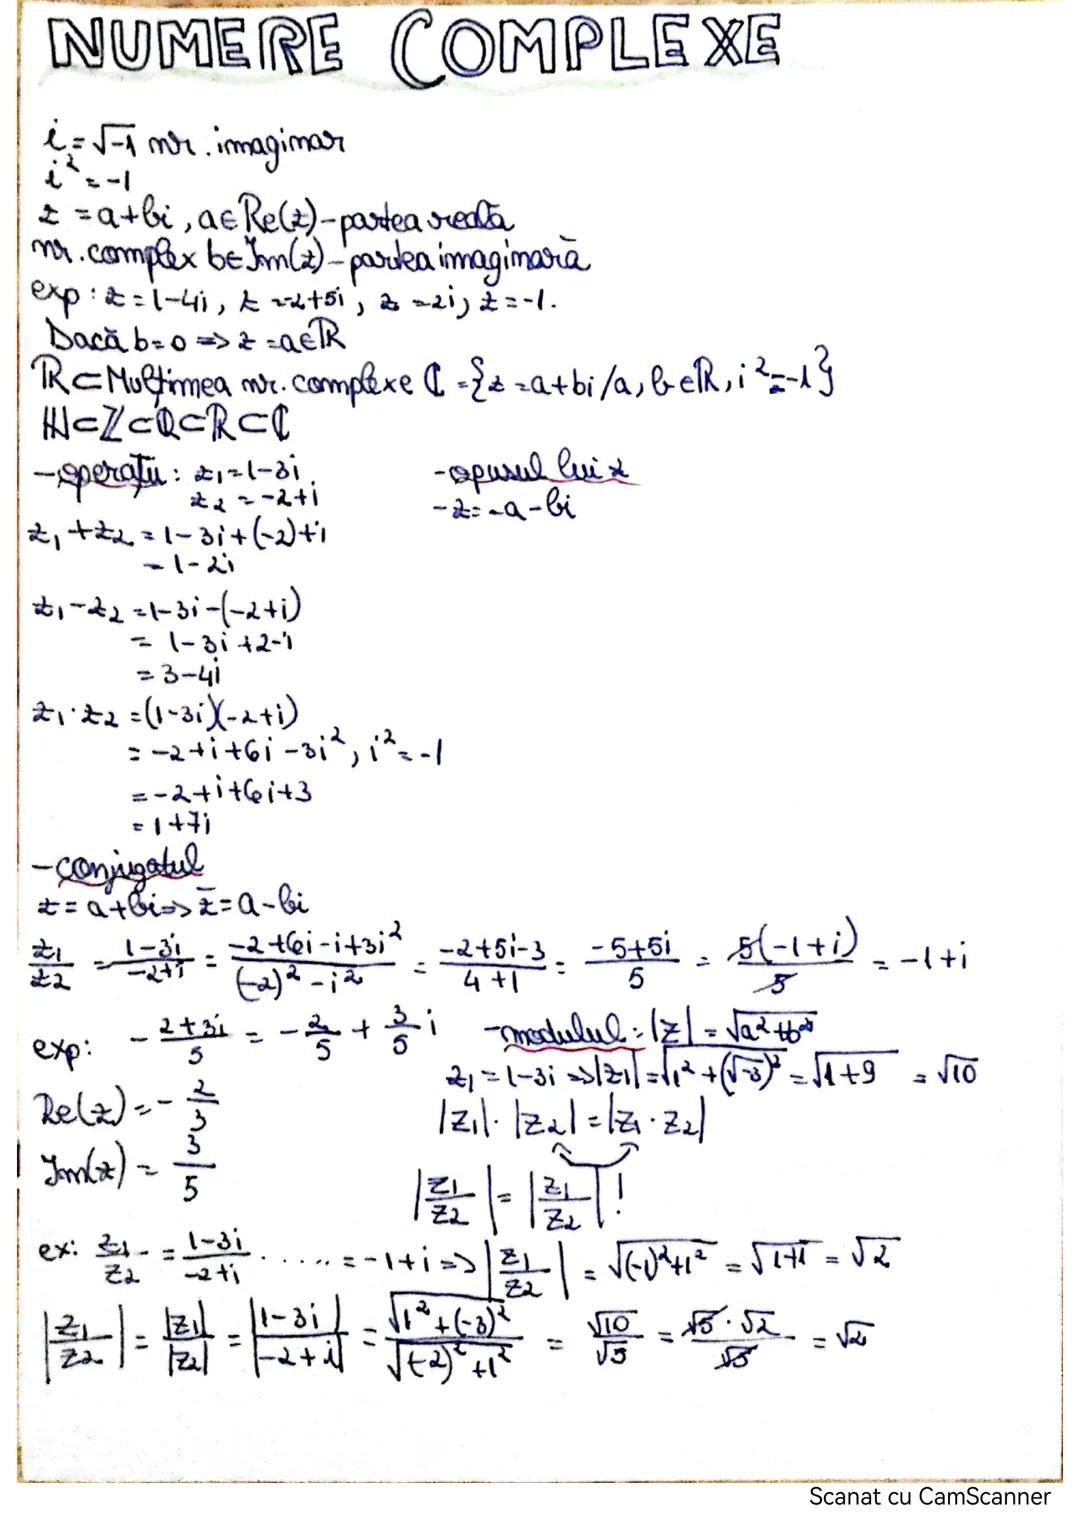 NUMERE COMPLEXE
i = √-1 nr. imaginar
i² = -1
z = a+bi, a∈Re(z) - partea reală
nr. complex b∈Im(z) - partea imaginară
exp: z = 1-4i, z = -2+5i, z = 2i, z = -1.
Dacă b=0 => z = a∈ℝ
ℝ⊂Mulțimea nr. complexe ℂ = {z = a+bi/a, b∈ℝ, i² = -1}
ℕ⊂ℤ⊂ℚ⊂ℝ⊂ℂ
- operații: z₁ = 1-3i
z₂ = -2+i
- opusul lui z
-z = -a-bi
z₁+z₂ = 1-3i+(-2)+i
= 1-2i
z₁-z₂ = 1-3i-(-2+i)
= 1-3i+2-i
= 3-4i
z₁·z₂ = (1-3i)(-2+i)
= -2+i+6i-3i², i² = -1
= -2+i+6i+3
= 1+7i
- conjugatul
z = a+bi => z̄ = a-bi
z₁/z₂ = (1-3i)/(-2+i) = (-2+6i-i+3i²)/((-2)²-i²) = (-2+5i-3)/(4+1) = (-5+5i)/5 = 5(-1+i)/5 = -1+i
exp: -(2+3i)/5 = -2/5 + 3/5 i
Re(z) = -2/3
Im(z) = 3/5
- modulul: |z| = √(a²+b²)
z₁ = 1-3i => |z₁| = √(1²+(√-3)²) = √(1+9) = √10
|z₁|·|z₂| = |z₁·z₂|
|z₁/z₂| = |z₁/z₂| !
ex: z₁/z₂ = (1-3i)/(-2+i) ..... = -1+i => |z₁/z₂| = √((-1)²+1²) = √(1+1) = √2
|z₁/z₂| = |z₁|/|z₂| = |1-3i|/|-2+i| = √(1²+(-3)²)/√((-2)²+1²) = √10/√5 = √5·√2/√5 = √2
Scanat cu CamScanner